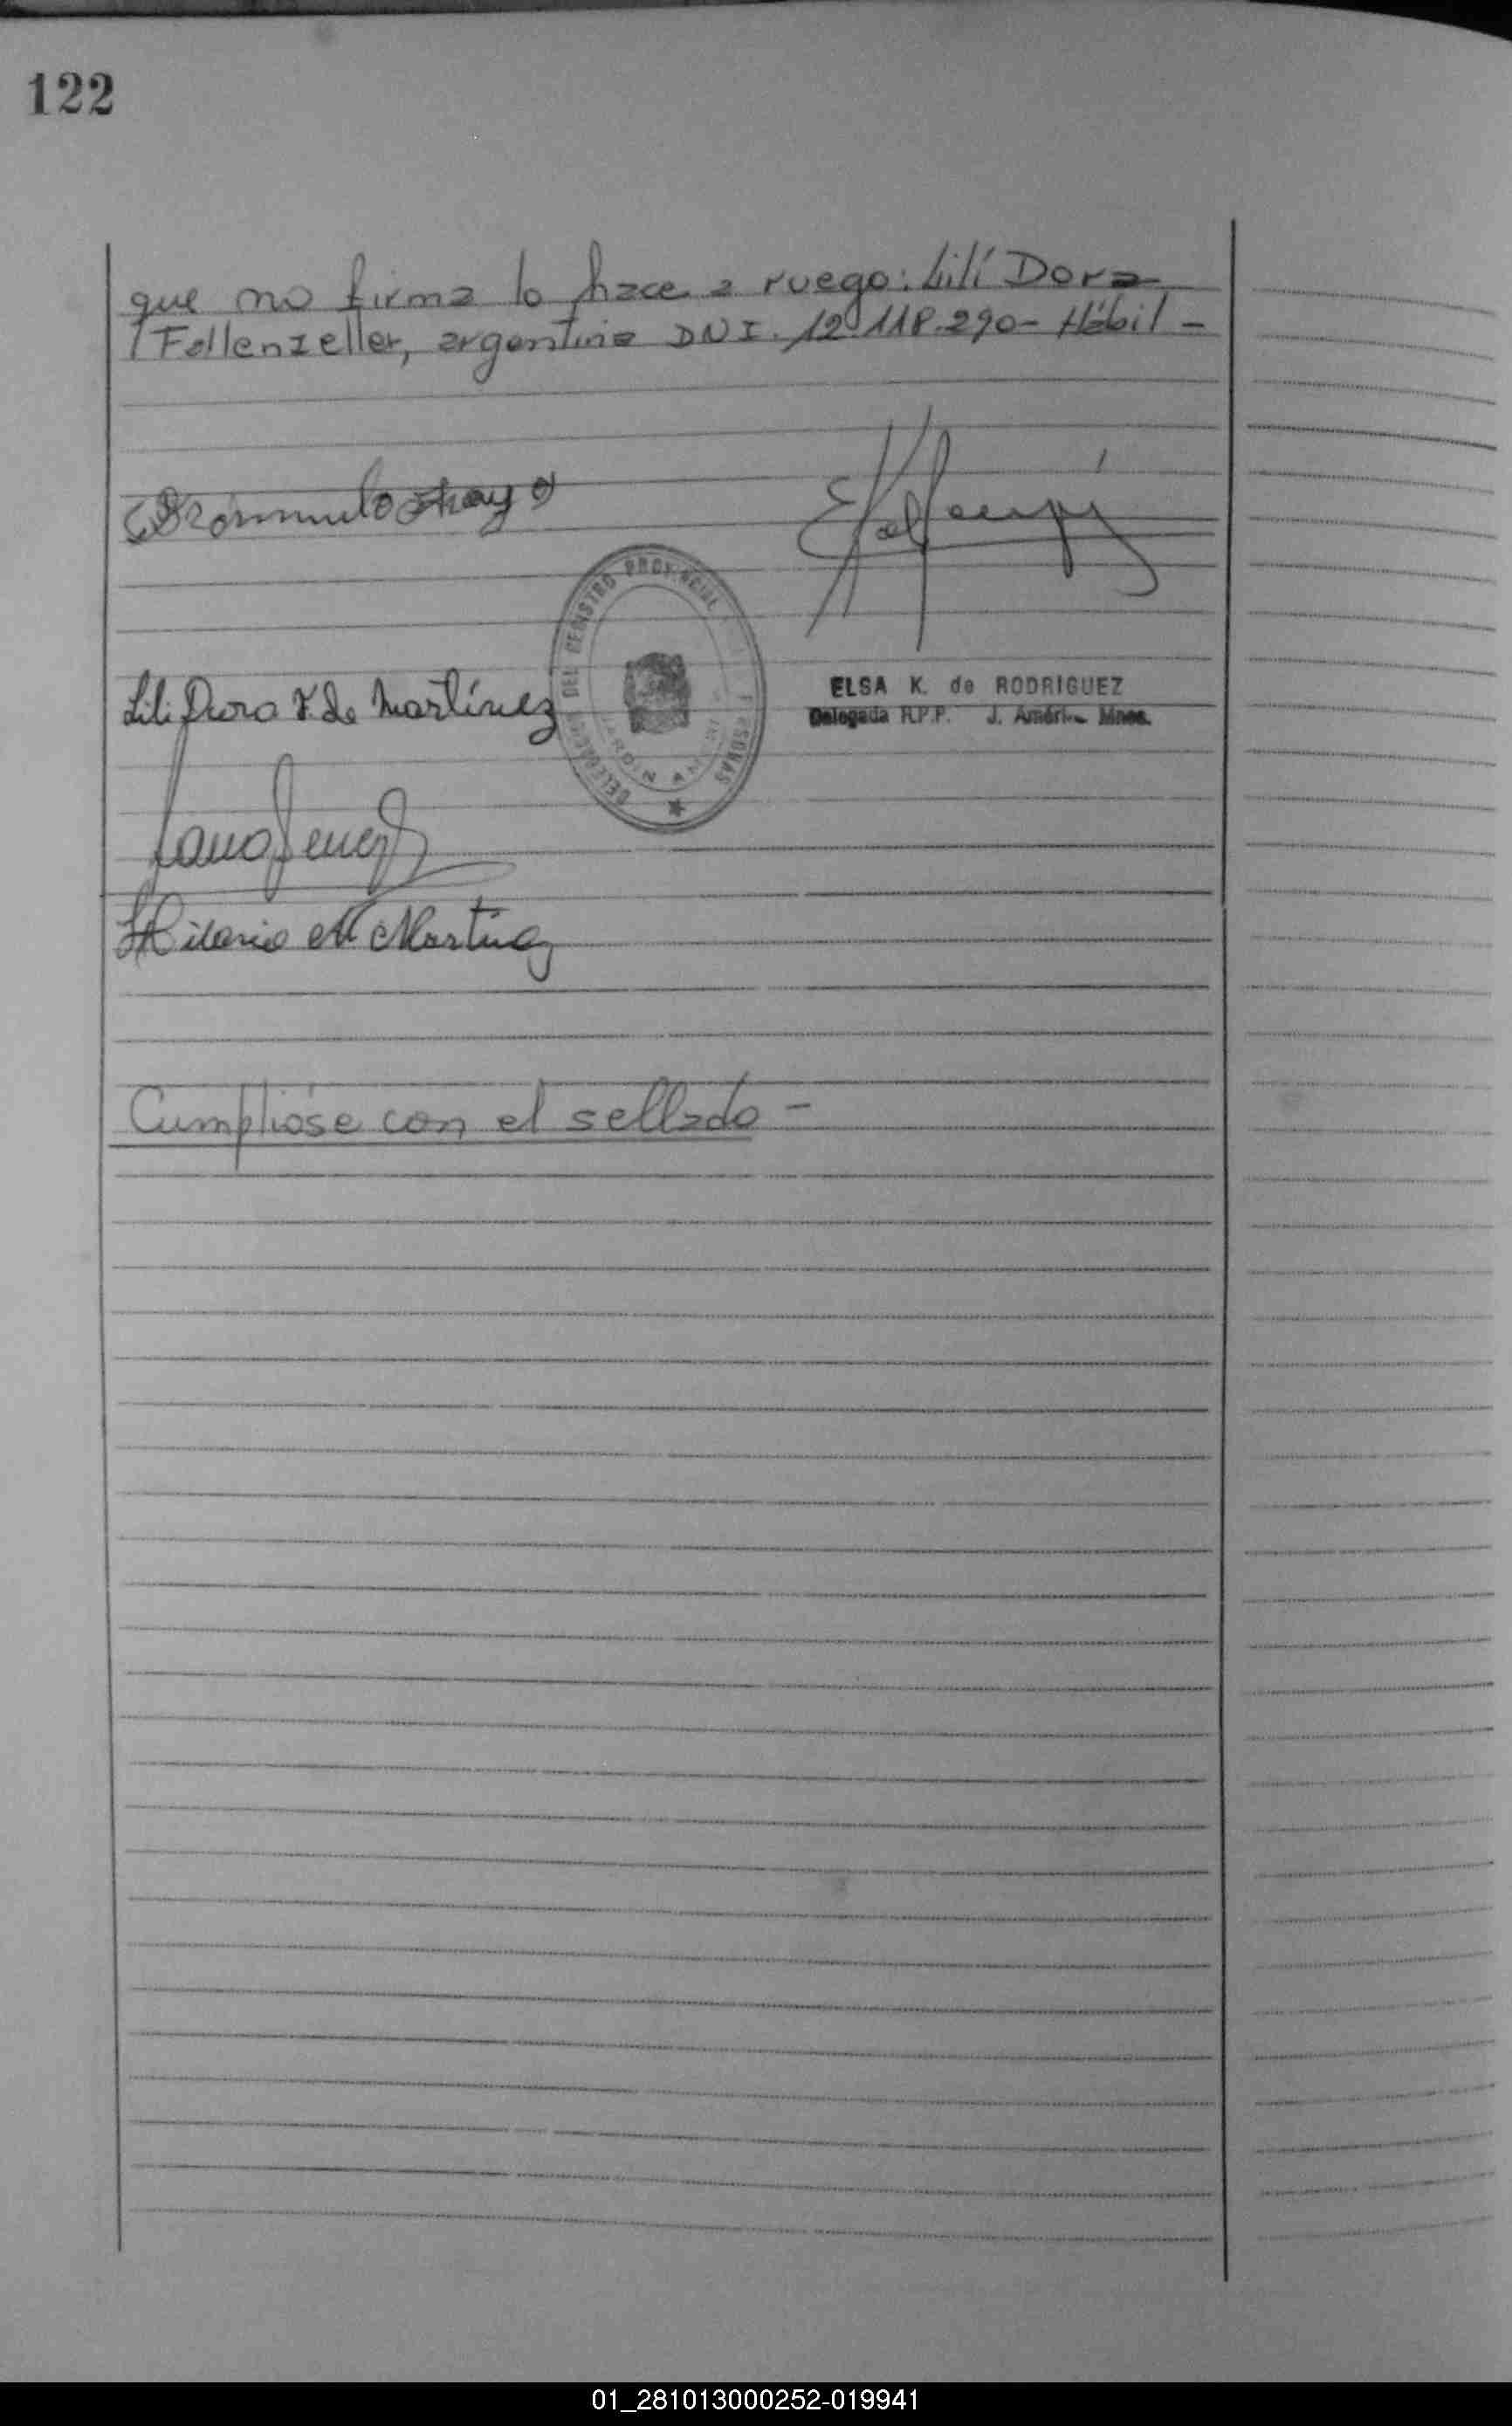 122
que no firma lo hace a ruego: Lilí Dora
Fellenzeller, argentina DNI. 12.118.290- Hábil -
Lili Dora F. de Martínez
ELSA K. de RODRIGUEZ
Delegada R.P.P. J. Améri Mnes.
DELEGACION DEL REGISTRO PROVINCIAL PERSONAS
JARDIN AMERICA
Hilario M Martinez
Cumplióse con el sellado -
01_281013000252-019941